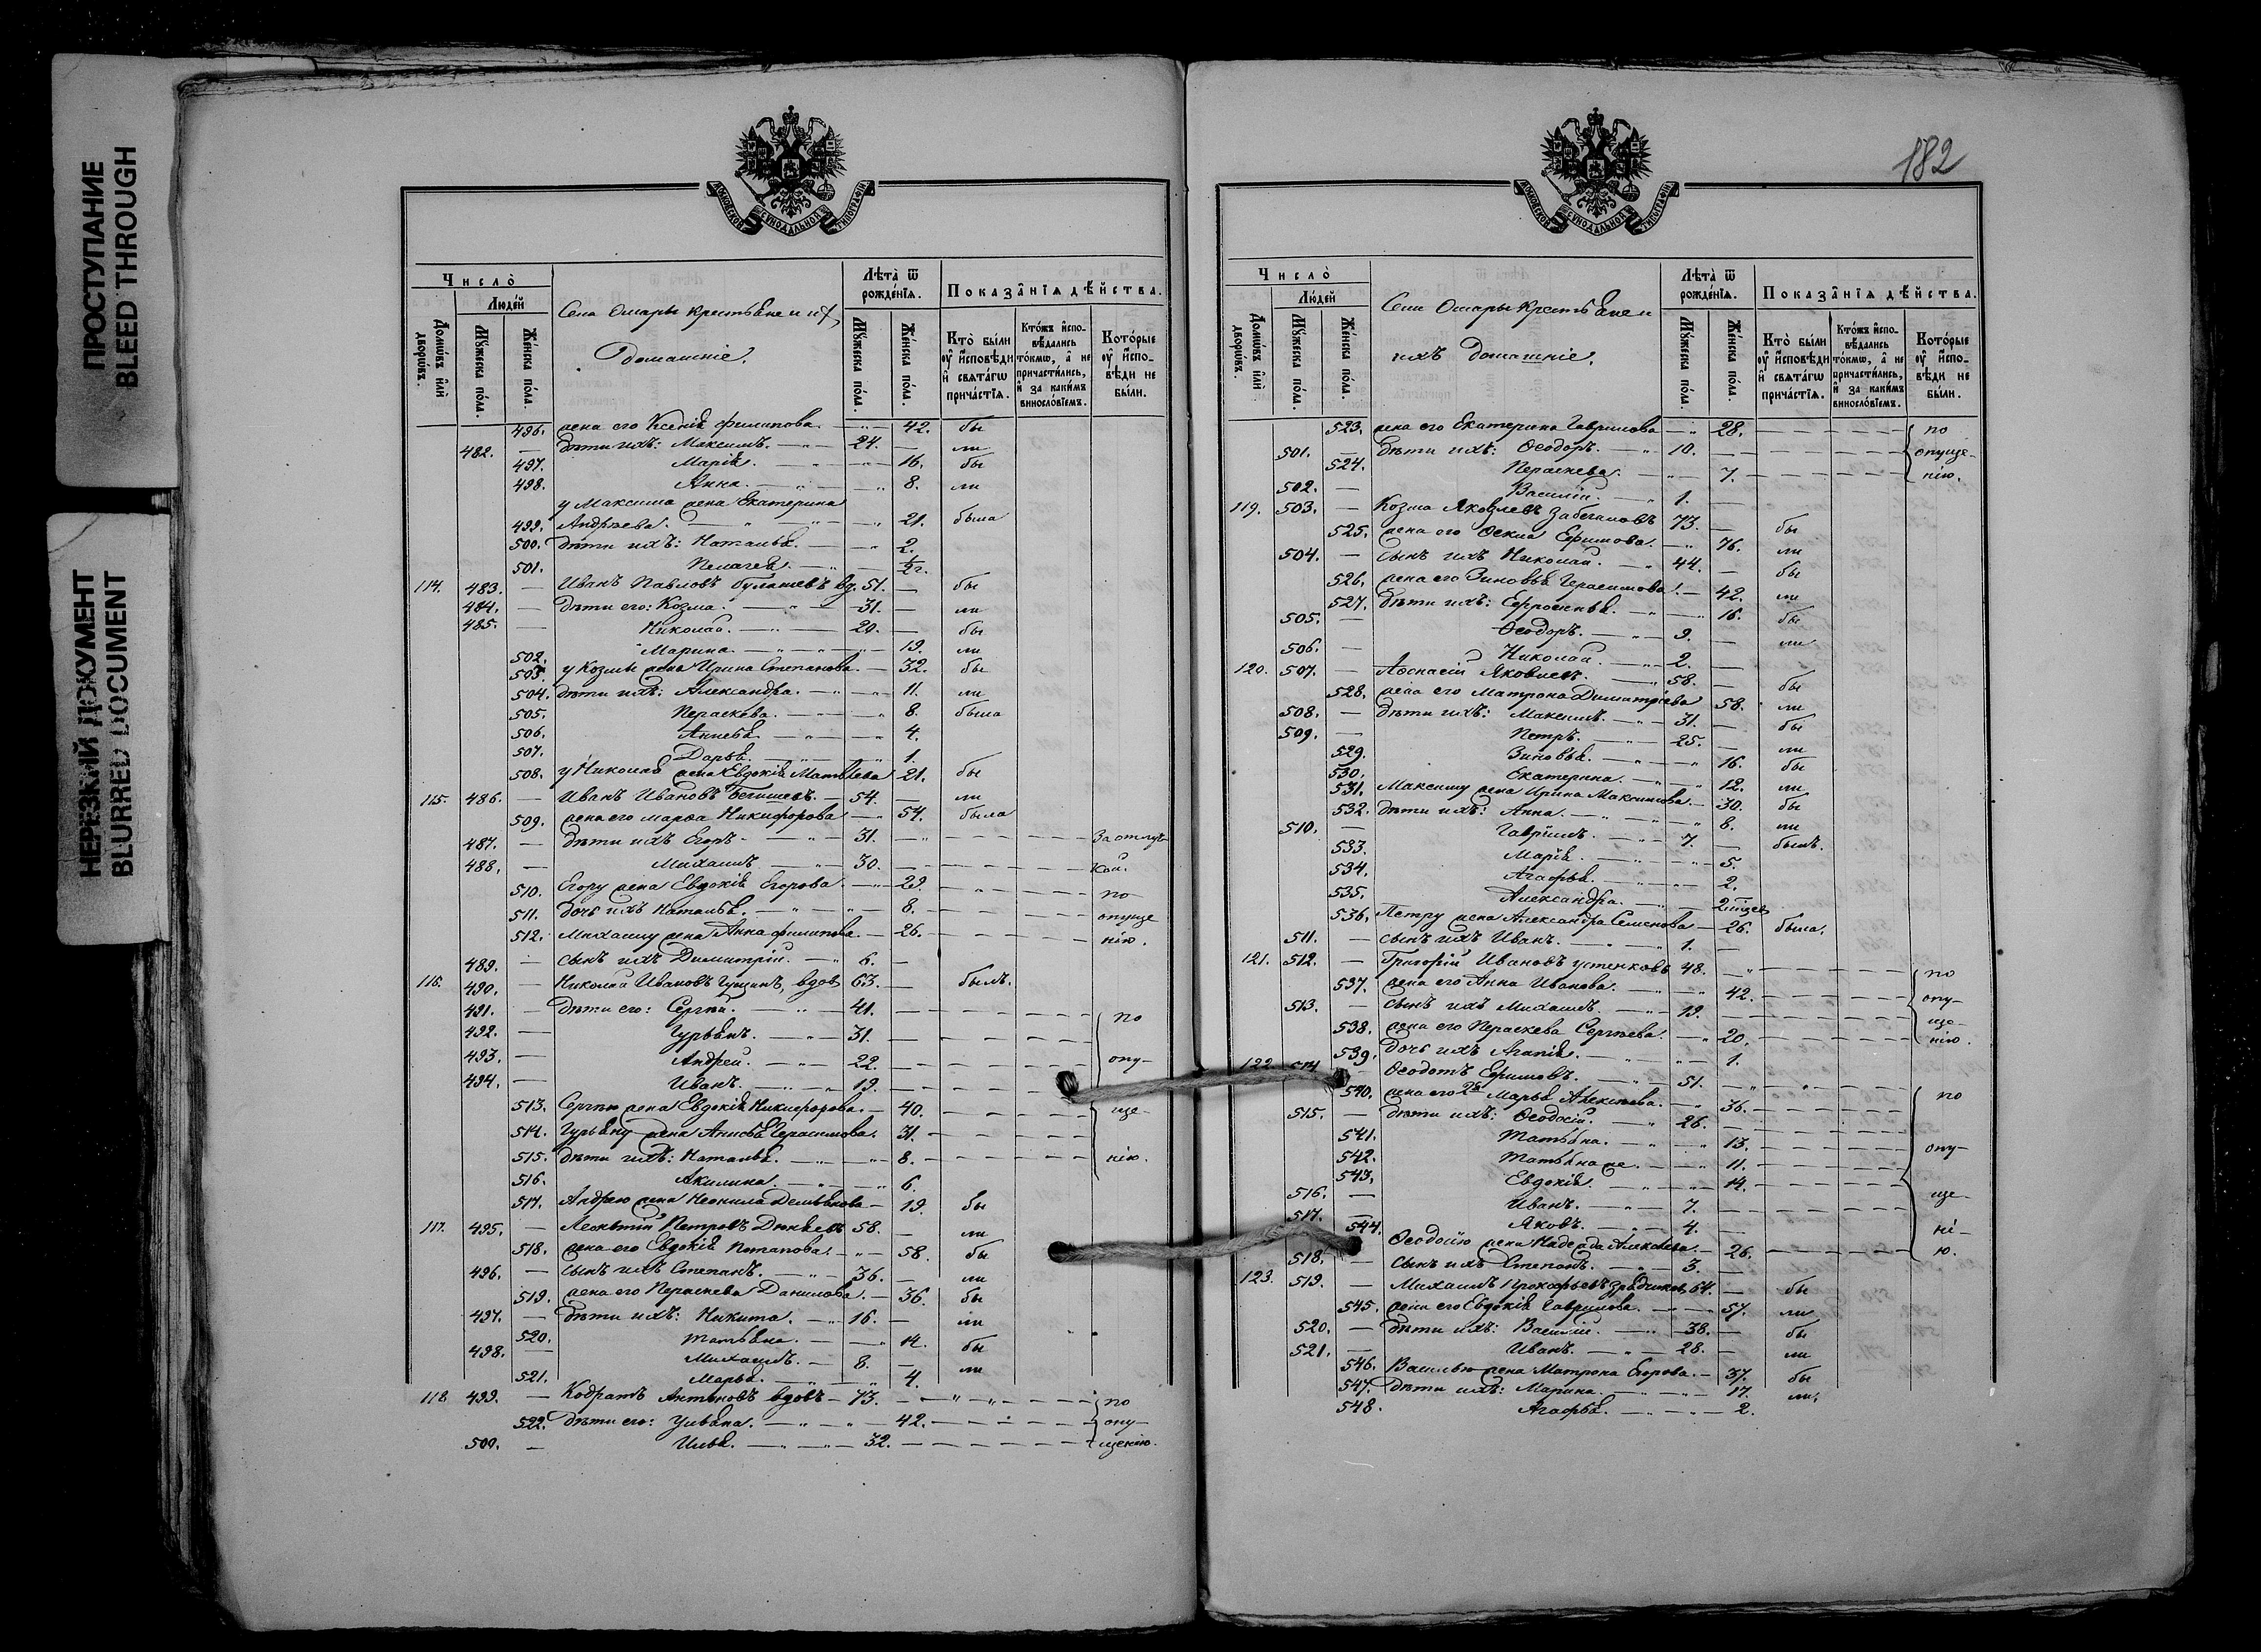 ПРОСТУПАНИЕ
BLEED THROUGH
НЕРЕЗКИЙ ДОКУМЕНТ
BLURRED DOCUMENT
МОСКОВСКОЙ СѴНОДАЛЬНОЙ ТИПОГРАФІИ
Число̀
Людей
Домѡвъ и҆лѝ дворѡ́въ.
Мꙋжеска по́ла.
Же́нска по́ла.
Села Омары крестьяне и ихъ
домашніе.
Лѣта̀ ѿ рожде́нїѧ.
Мꙋжеска по́ла.
Же́нска по́ла.
Показа̑нїѧ дѣ́йства.
Кто̀ бы́ли ᲂу҆ и҆сповѣди и҆ свѧта́гѡ прича́стїѧ.
Кто́жъ и҆сповѣдались то́кмѡ, а҆ не причасти́лись, и҆ за каки́мъ винословїемъ.
Кото́рые ᲂу҆ и҆сповѣди не бы́ли.
496. жена его Ксенія Филипова. 42. бы
482. — дѣти ихъ: Максимъ. 24. — ли
497. Марія. 16. бы
498. Анна. 8. ли
у Максима жена Екатерина
499. Андреева. 21. была
500. дѣти ихъ: Наталья. 2.
501. Пелагея. ½ г.
114. 483. — Иванъ Павловъ Булашевъ вд. 51. — бы
484. — дѣти его: Козма. 31. — ли
485. — Николай. 20. — бы
502. Марина. 19. ли
503. у Козмы жена Ирина Степанова. 32. бы
504. дѣти ихъ: Александра. 11. ли
505. Пераскева. 8. была
506. Аннета. 4.
507. Дарья. 1.
508. у Николая жена Евдокія Матвѣева 21. бы
115. 486. — Иванъ Ивановъ Бегишевъ. 54. — ли
509. жена его Марѳа Никифорова 54. была
487. — дѣти ихъ Егоръ 31. За отлуч-
488. — Михаилъ 30. кой.
510. Егору жена Евдокія Егорова. 29. по
511. дочь ихъ Наталья. 8. опуще
512. Михаилу жена Анна Филипова. 26. нію.
489. — сынъ ихъ Димитрій. 6. —
116. 490. — Николай Ивановъ Гущинъ, вдов 63. — былъ.
491. — дѣти его: Сергѣй. 41. по
492. — Гурьянъ. 31.
493. — Андрей. 22. опу-
494. — Иванъ. 19.
513. Сергѣю жена Евдокія Никифорова. 40. ще-
514. Гурьяну жена Анисья Герасимова. 31.
515. дѣти ихъ: Наталья. 8. нію.
516. Акилина. 6
517. Андрею жена Неонила Демьянова 19. бы
117. 495. — Леонтій Петровъ 58. — ли
518. жена его Евдокія Потапова. 58. бы
496. — сынъ ихъ Степанъ. 36. — ли
519. жена его Пераскева Данилова. 36. бы
497. — дѣти ихъ: Никита. 16. — ли
520. Татьяна. 14. бы
498. — Михаилъ. 8. — ли
521. Марья. 4.
118. 499. — Кодратъ Антоновъ вдовъ 73. по
522. дѣти его: Уливана. 42. опу-
500. — Илья. 32. щенію.
182
МОСКОВСКОЙ СѴНОДАЛЬНОЙ ТИПОГРАФІИ
Число̀
Людей
Домѡвъ и҆лѝ дворѡ́въ.
Мꙋжеска по́ла.
Же́нска по́ла.
Села Омары Крестьяне и
ихъ домашніе.
Лѣта̀ ѿ рожде́нїѧ.
Мꙋжеска по́ла.
Же́нска по́ла.
Показа̑нїѧ дѣ́йства.
Кто̀ бы́ли ᲂу҆ и҆сповѣди и҆ свѧта́гѡ прича́стїѧ.
Кто́жъ и҆сповѣдались то́кмѡ, а҆ не причасти́лись, и҆ за каки́мъ винословїемъ.
Кото́рые ᲂу҆ и҆сповѣди не бы́ли.
523. жена его Екатерина Гаврилова 28. по
501. — дѣти ихъ: Ѳеодоръ. 10. опуще-
524. Пераскева. 7. нію.
502. — Василій. 1. —
119. 503. — Козма Яковлевъ Забегаловъ 73. — бы
525. жена его Ѳекла Ефимова. 76. ли
504. — сынъ ихъ Николай. 44. — бы
526. жена его Зиновья Герасимова. 42. ли
527. дѣти ихъ: Ефросинья. 16. бы
505. — Ѳеодоръ. 9. — ли
506. — Николай. 2. —
120. 507. — Аѳанасій Яковлевъ. 58. — бы
528. жена его Матрона Димитріева 58. ли
508. — дѣти ихъ: Максимъ. 31. — бы
509. — Петръ. 25. — ли
529. Зиновья. 16. бы
530. Екатерина. 12. ли
531. Максиму жена Ирина Максимова. 30. бы
532. дѣти ихъ: Анна. 8. ли
510. — Гавріилъ. 7. — былъ.
533. Марія. 5.
534. Агафья. 2.
535. Александра. 2
536. Петру жена Александра Семенова 26. была.
511. — сынъ ихъ Иванъ. 1. —
121. 512. — Григорій Ивановъ Устенковъ 48. по
537. жена его Анна Иванова. 42. опу-
513. — сынъ ихъ Михаилъ. 19. ще-
538. жена его Пераскева Сергѣева. 20. нію.
539. дочь ихъ Агапія. 1.
122. 514. Ѳеодотъ Ефимовъ. 51. по
540. жена его 2я Марья Алексѣева. 36.
515. — дѣти ихъ: Ѳеодосій. 26.
541. Татьяна. 13. опу-
542. Татьяна же. 11.
543. Евдокія. 14.
516. — Иванъ. 7. ще-
517. — Яковъ. 4. ні-
544. Ѳеодосію жена Надежда Алексѣева. 26. ю.
518. — сынъ ихъ Степанъ. 3. —
123. 519. — Михаилъ Прокофьевъ 64. — бы
545. жена его Евдокія Гаврилова. 57. ли
520. — дѣти ихъ: Василій. 38. — бы
521. — Иванъ. 28. — ли
546. Василью жена Матрона Егорова. 37. бы
547. дѣти ихъ: Марина. 17. ли.
548. Агафья. 2.